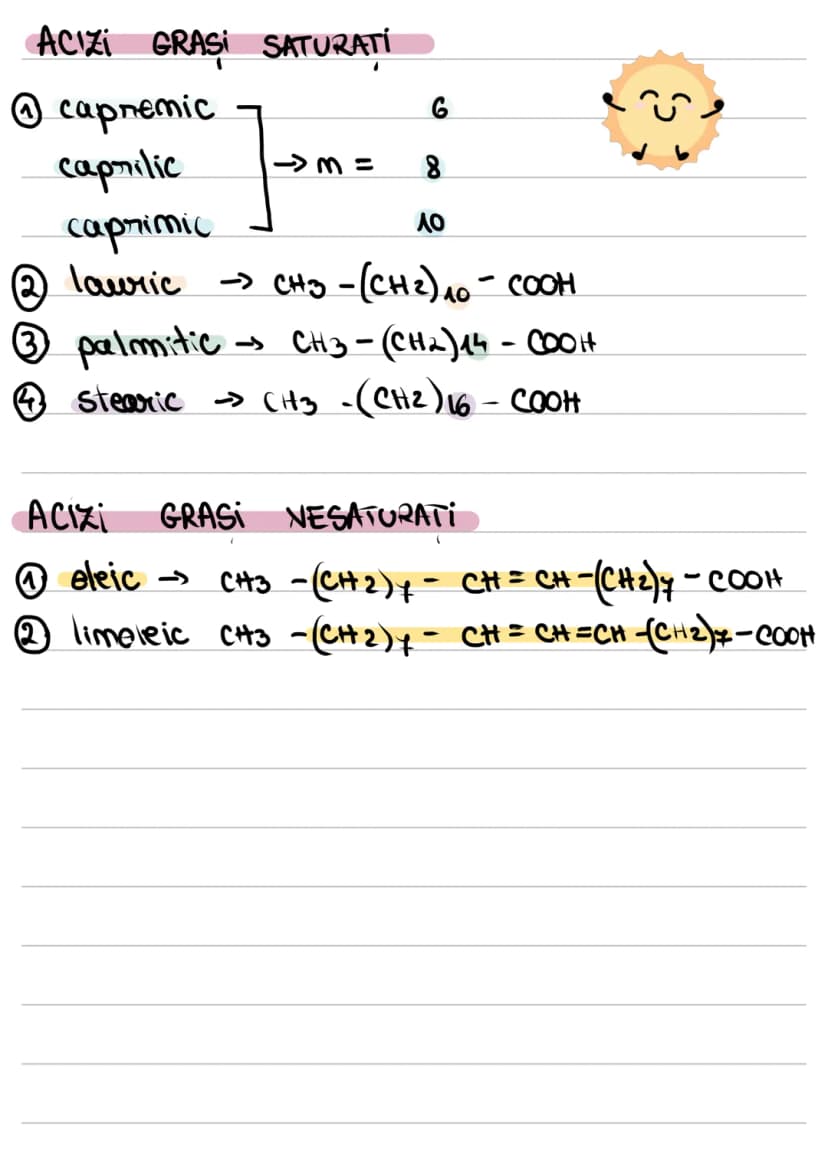 ACIZI GRAȘI SATURAȚI
① capronic 6
caprilic → n = 8
caprinic 10
② lauric → CH3 - (CH2)10 - COOH
③ palmitic → CH3 - (CH2)14 - COOH
④ stearic → CH3 - (CH2)16 - COOH
ACIZI GRAȘI NESATURAȚI
① oleic → CH3 - (CH2)7 - CH = CH - (CH2)7 - COOH
② linoleic CH3 - (CH2)7 - CH = CH = CH - (CH2)7 - COOH